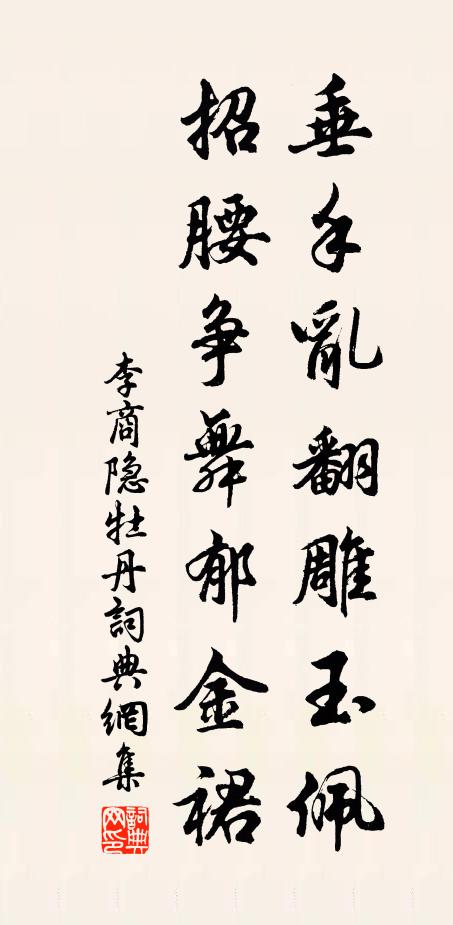 垂手亂翻雕玉佩
招腰争舞郁金裙
李商隐牡丹詞典網集
詞典网印